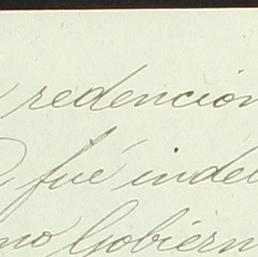 redención
fué inde
no Gobiern